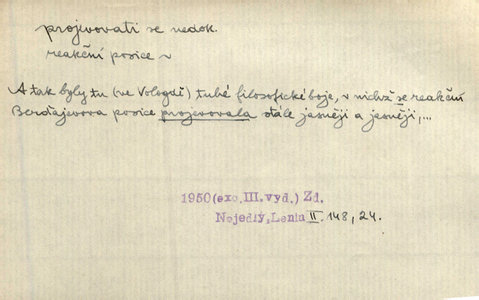 projevovati se nedok.
reakční posice ~
A tak byly tu (ve Vologdě) tuhé filosofické boje, v nichž se reakční
Berďajevova posice projevovala stále jasněji a jasněji,...
1950 (exc. III. vyd.) Zd.
Nejedlý, Lenin II. 148, 24.